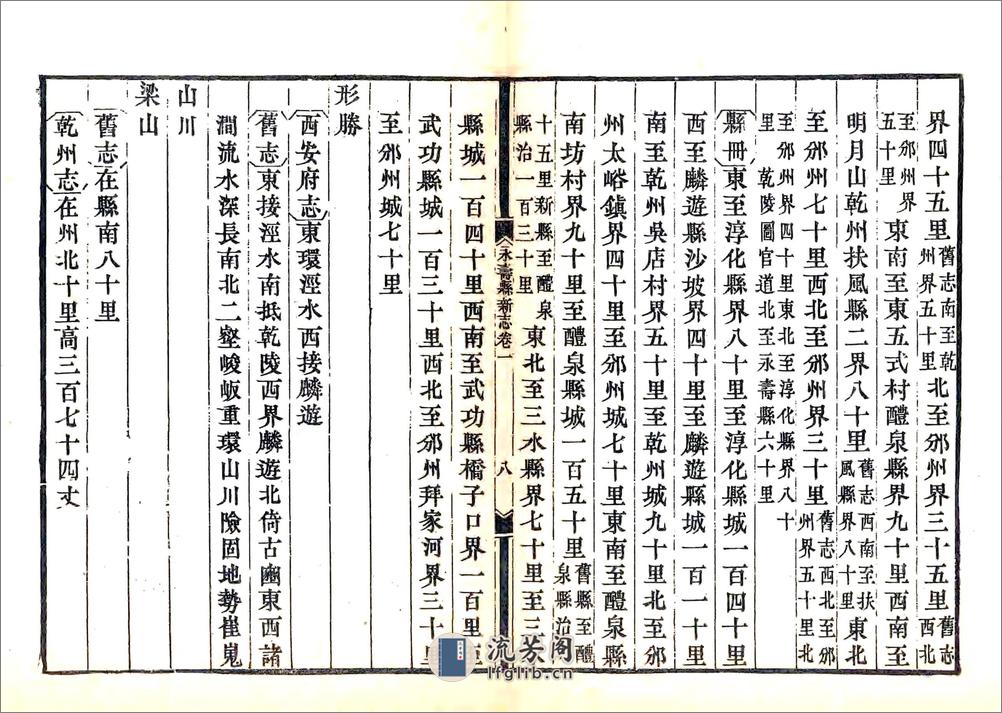 界四十五里舊志南至乾州界五十里北至邠州界三十五里舊志西北
至邠州界五十里東南至東五式村醴泉縣界九十里西南至
明月山乾州扶風縣二界八十里舊志西南至扶風縣界八十里東北
至邠州七十里西北至邠州界三十里舊志西北至邠州界五十里北
至邠州界四十里東北至淳化縣界八十里 乾陵圖官道北至永壽縣六十里
縣冊東至淳化縣界八十里至淳化縣城一百四十里
西至麟遊縣沙坡界四十里至麟遊縣城一百一十里
南至乾州吳店村界五十里至乾州城九十里北至邠
州太峪鎮界四十里至邠州城七十里東南至醴泉縣
南坊村界九十里至醴泉縣城一百五十里舊縣至醴泉縣治
十五里新縣至醴泉縣治一百三十里東北至三水縣界七十里至三
永壽縣新志卷一
八
縣城一百四十里西南至武功縣橋子口界一百里至
武功縣城一百三十里西北至邠州拜家河界三十里
至邠州城七十里
形勝
西安府志東環涇水西接麟遊
舊志東接涇水南抵乾陵西界麟遊北倚古豳東西諸
澗流水深長南北二壑峻岅重環山川險固地勢崔嵬
山川
梁山
舊志在縣南八十里
乾州志在州北十里高三百七十四丈
流芳阁
lfglib.cn